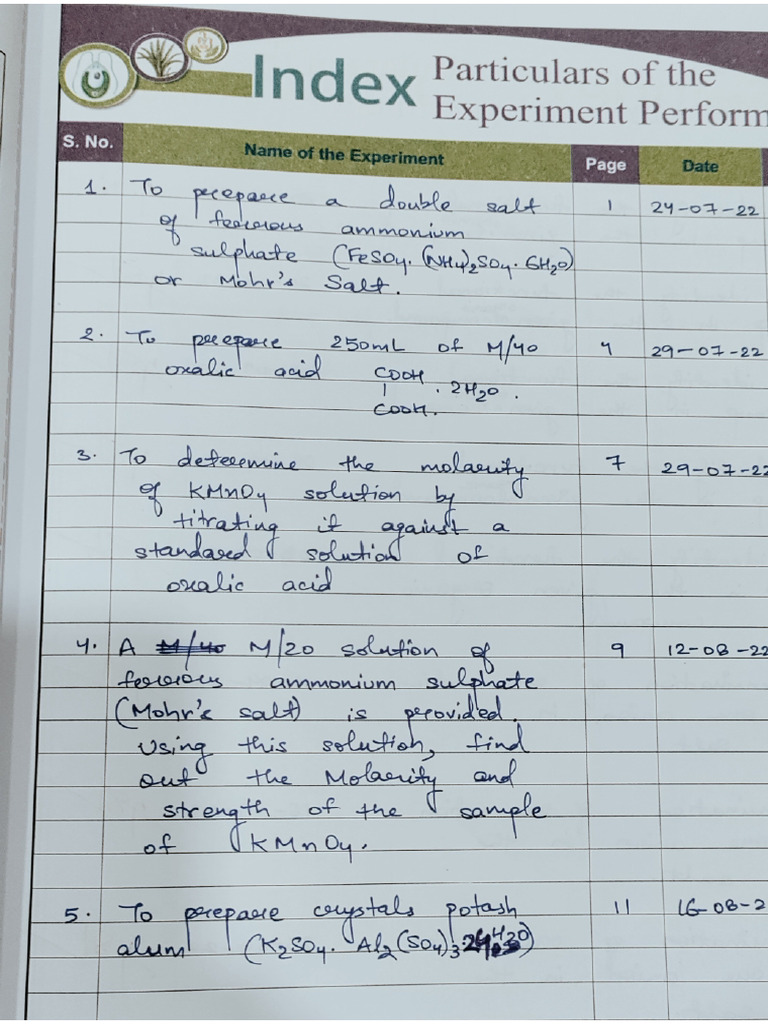 Index Particulars of the
Experiment Perform
S. No. Name of the Experiment Page Date
1. To prepare a double salt 1 24-07-22
of ferrous ammonium
sulphate (FeSO4. (NH4)2SO4. 6H2O)
or Mohr's Salt.
2. To prepare 250mL of M/40 4 29-07-22
oxalic acid COOH
| . 2H2O .
COOH.
3. To determine the molarity 7 29-07-22
of KMnO4 solution by
titrating it against a
standard solution of
oxalic acid
4. A M/40 M/20 solution of 9 12-08-22
ferrous ammonium sulphate
(Mohr's salt) is provided.
Using this solution, find
out the Molarity and
strength of the sample
of KMnO4.
5. To prepare crystals potash 11 16-08-2
alum (K2SO4. Al2(SO4)3.24H2O)